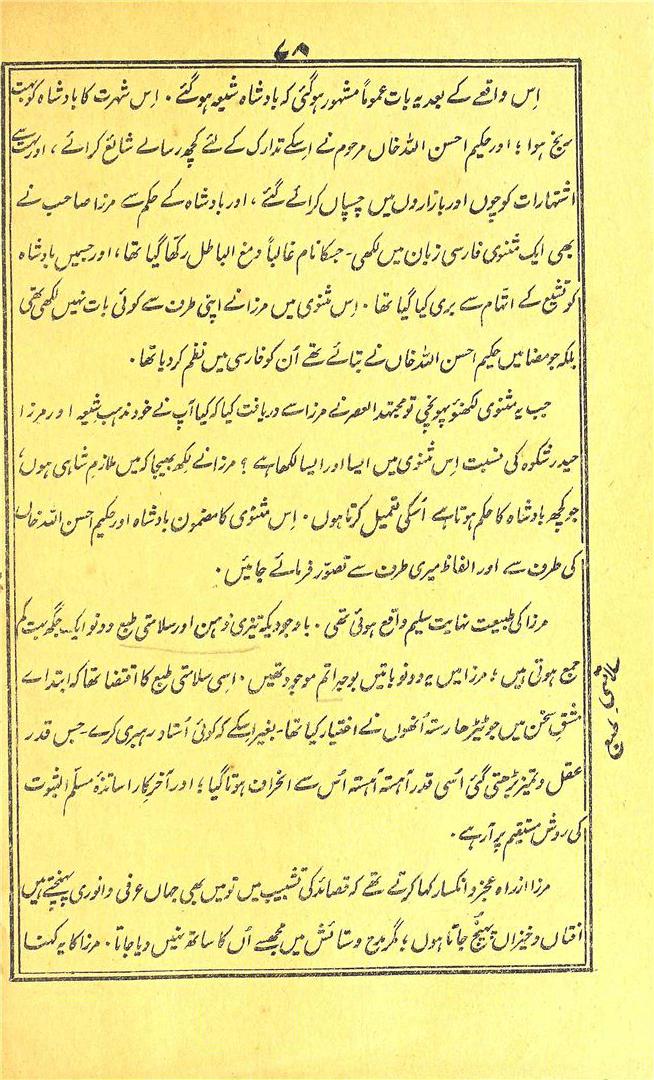 ۷۸
اِس واقعے کے بعد یہ بات عموماً مشہور ہوگئی کہ بادشاہ شیعہ ہوگئے ۔ اِس شہرت کا بادشاہ کو بہت
رنج ہوا ؛ اور حکیم احسن اللہ خاں مرحوم نے اسکے تدارک کے لئے کچھ رسالے شائع کرائے ، اور بہت سے
اشتہارات کوچوں اور بازاروں میں چسپاں کرائے گئے ، اور بادشاہ کے حکم سے مرزا صاحب نے
بھی ایک مثنوی فارسی زبان میں لکھی ۔ جسکا نام غالباً دمغ الباطل رکھا گیا تھا ، اور جسمیں بادشاہ
کو تشیع کے اتہام سے بری کیا گیا تھا ۔ اِس مثنوی میں مرزا نے اپنی طرف سے کوئی بات نہیں لکھی تھی
بلکہ جو مضامین حکیم احسن اللہ خاں نے بتائے تھے اُن کو فارسی میں نظم کر دیا تھا ۔
جب یہ مثنوی لکھنؤ پہونچی تو مجتہد العصر نے مرزا سے دریافت کیا کہ کیا آپ نے خود مذہب شیعہ اور مرزا
حیدر شکوہ کی نسبت اِس مثنوی میں ایسا اور ایسا لکھا ہے ؟ مرزا نے لکھ بھیجا کہ میں ملازمِ شاہی ہوں ،
جو کچھ بادشاہ کا حکم ہوتا ہے اُسکی تعمیل کرتا ہوں ۔ اِس مثنوی کا مضمون بادشاہ اور حکیم احسن اللہ خاں
کی طرف سے اور الفاظ میری طرف سے تصوّر فرمائے جائیں ۔
مرزا کی طبیعت نہایت سلیم واقع ہوئی تھی ۔ باوجودیکہ تیزیِ ذہن اور سلامتیِ طبع دونو ایک جگہ بہت کم
جمع ہوتی ہیں ؛ مرزا میں یہ دونو باتیں بوجہ اتم موجود تھیں ۔ اسی سلامتیِ طبع کا اقتضا تھا کہ ابتداے
مشقِ سخن میں جو ٹیڑھا رستہ اُنھوں نے اختیار کیا تھا ۔ بغیر اسکے کہ کوئی اُستاد رہبری کرے ۔ جس قدر
عقل و تمیز بڑھتی گئی اُسی قدر آہستہ آہستہ اُس سے انحراف ہوتا گیا ؛ اور آخر کار اساتذۂ مسلّم الثبوت
کی روشِ مستقیم پر آ رہے ۔
مرزا از راہ عجز و انکسار کہا کرتے تھے کہ قصائد کی تشبیب میں تو میں بھی جہاں عرفی و انوری پہنچتے ہیں
افتاں و خیزاں پہنچ جاتا ہوں ؛ مگر مدح و ستائش میں مجھسے اُن کا ساتھ نہیں دیا جاتا ۔ مرزا کا یہ کہنا
سلامتیِ طبع